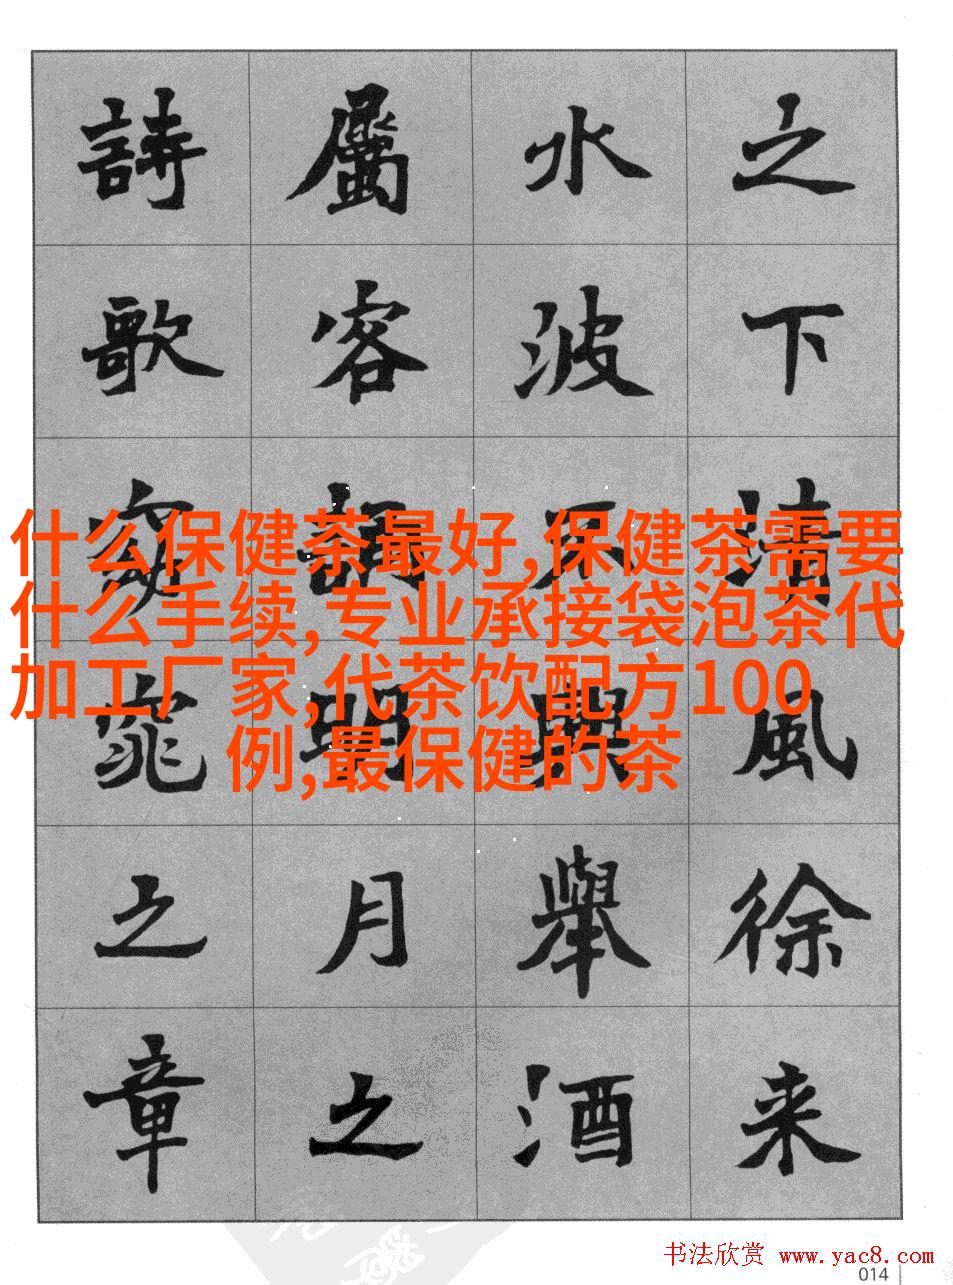 之下清風徐来
水波不興舉酒
屬客誦明月之
詩歌窈窕之章
什么保健茶最好,保健茶需要
什么手续,专业承接袋泡茶代
加工厂家,代茶饮配方100
例,最保健的茶
书法欣赏 www.yac8.com
014